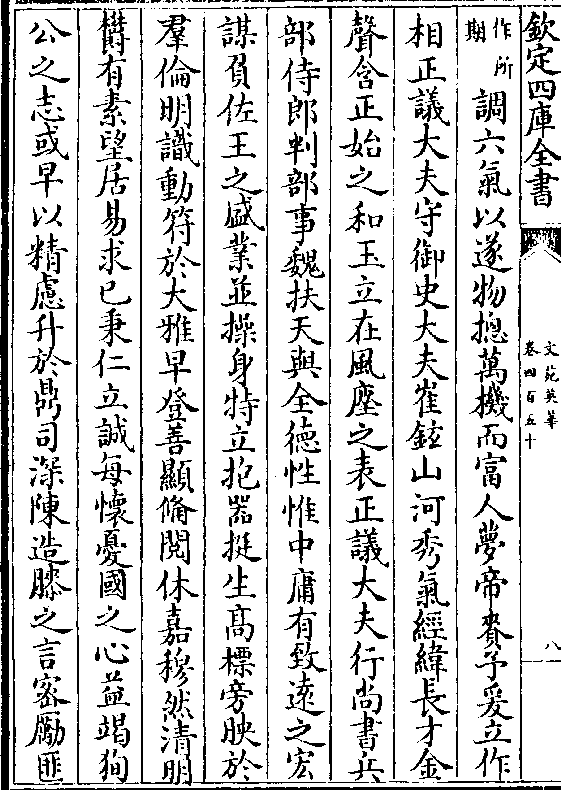 欽定四庫全書
文苑英華
卷四百五十
八
作所
期
調六氣以遂物揔萬機而富人夢帝賚予爰立作
相正議大夫守御史大夫崔鉉山河秀氣經緯長才金
聲含正始之和玉立在風塵之表正議大夫行尚書兵
部侍郎判部事魏扶天與全德性惟中庸有致遠之宏
謀負佐王之盛業並操身特立抱器挺生髙標旁映於
羣倫明識動符於大雅早登善顯脩閲休嘉穆然清明
欝有素望居易求已秉仁立誠每懐憂國之心益竭狥
公之志或早以精慮升於鼎司深陳造膝之言宻勵匪